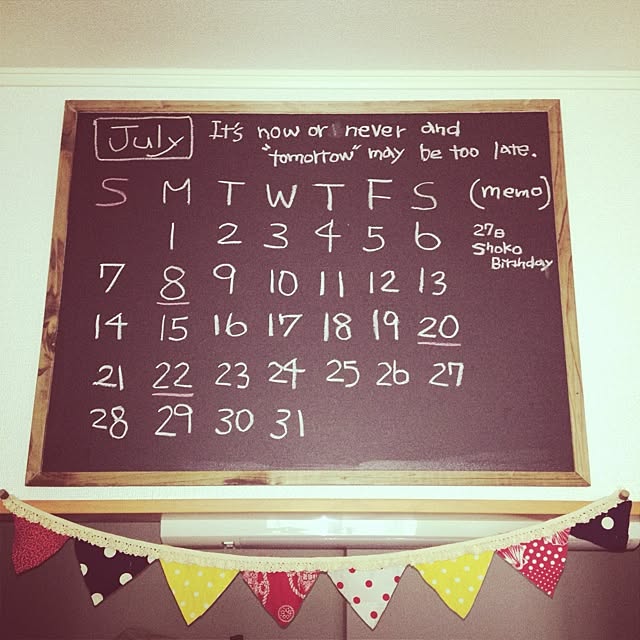 July It's now or never and
"tomorrow" may be too late.
S M T W T F S (memo)
1 2 3 4 5 6
27日
Shoko
Birthday
7 8 9 10 11 12 13
14 15 16 17 18 19 20
21 22 23 24 25 26 27
28 29 30 31